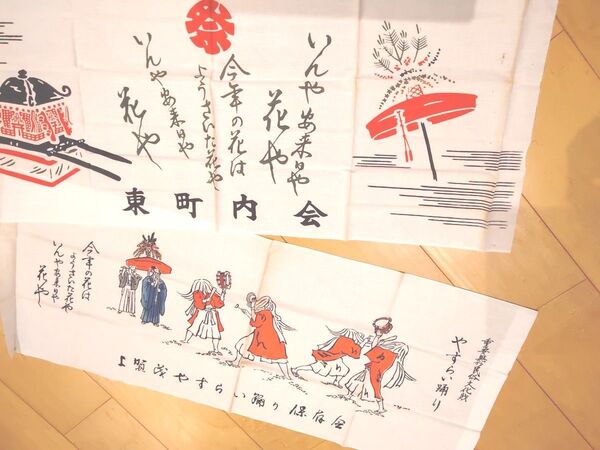 祭
いんや安来日や
花や
今年の花は
ようさいた花や
いんや安来日や
花や
東町内会
重要無形民俗文化財
やすらい踊り
今年の花は
ようさいた花や
いんや安来日や
花や
上賀茂やすらい踊り保存会